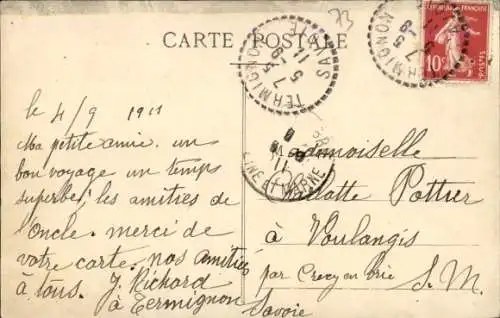 73
CARTE POSTALE
TERMIGNON
SAVOIE
5 - 9
11
RÉPUBLIQUE FRANÇAISE
10c
POSTES
le 4/9 1911
Ma petite amie. un
bon voyage un temps
superbe. les amitiés de
l'oncle. merci de
votre carte. nos amitiés
à tous. J. Richard
à Termignon
Savoie
SEINE ET MARNE
Mademoiselle
Pottier
à Voulangis
par Crecy en brie
S. M.